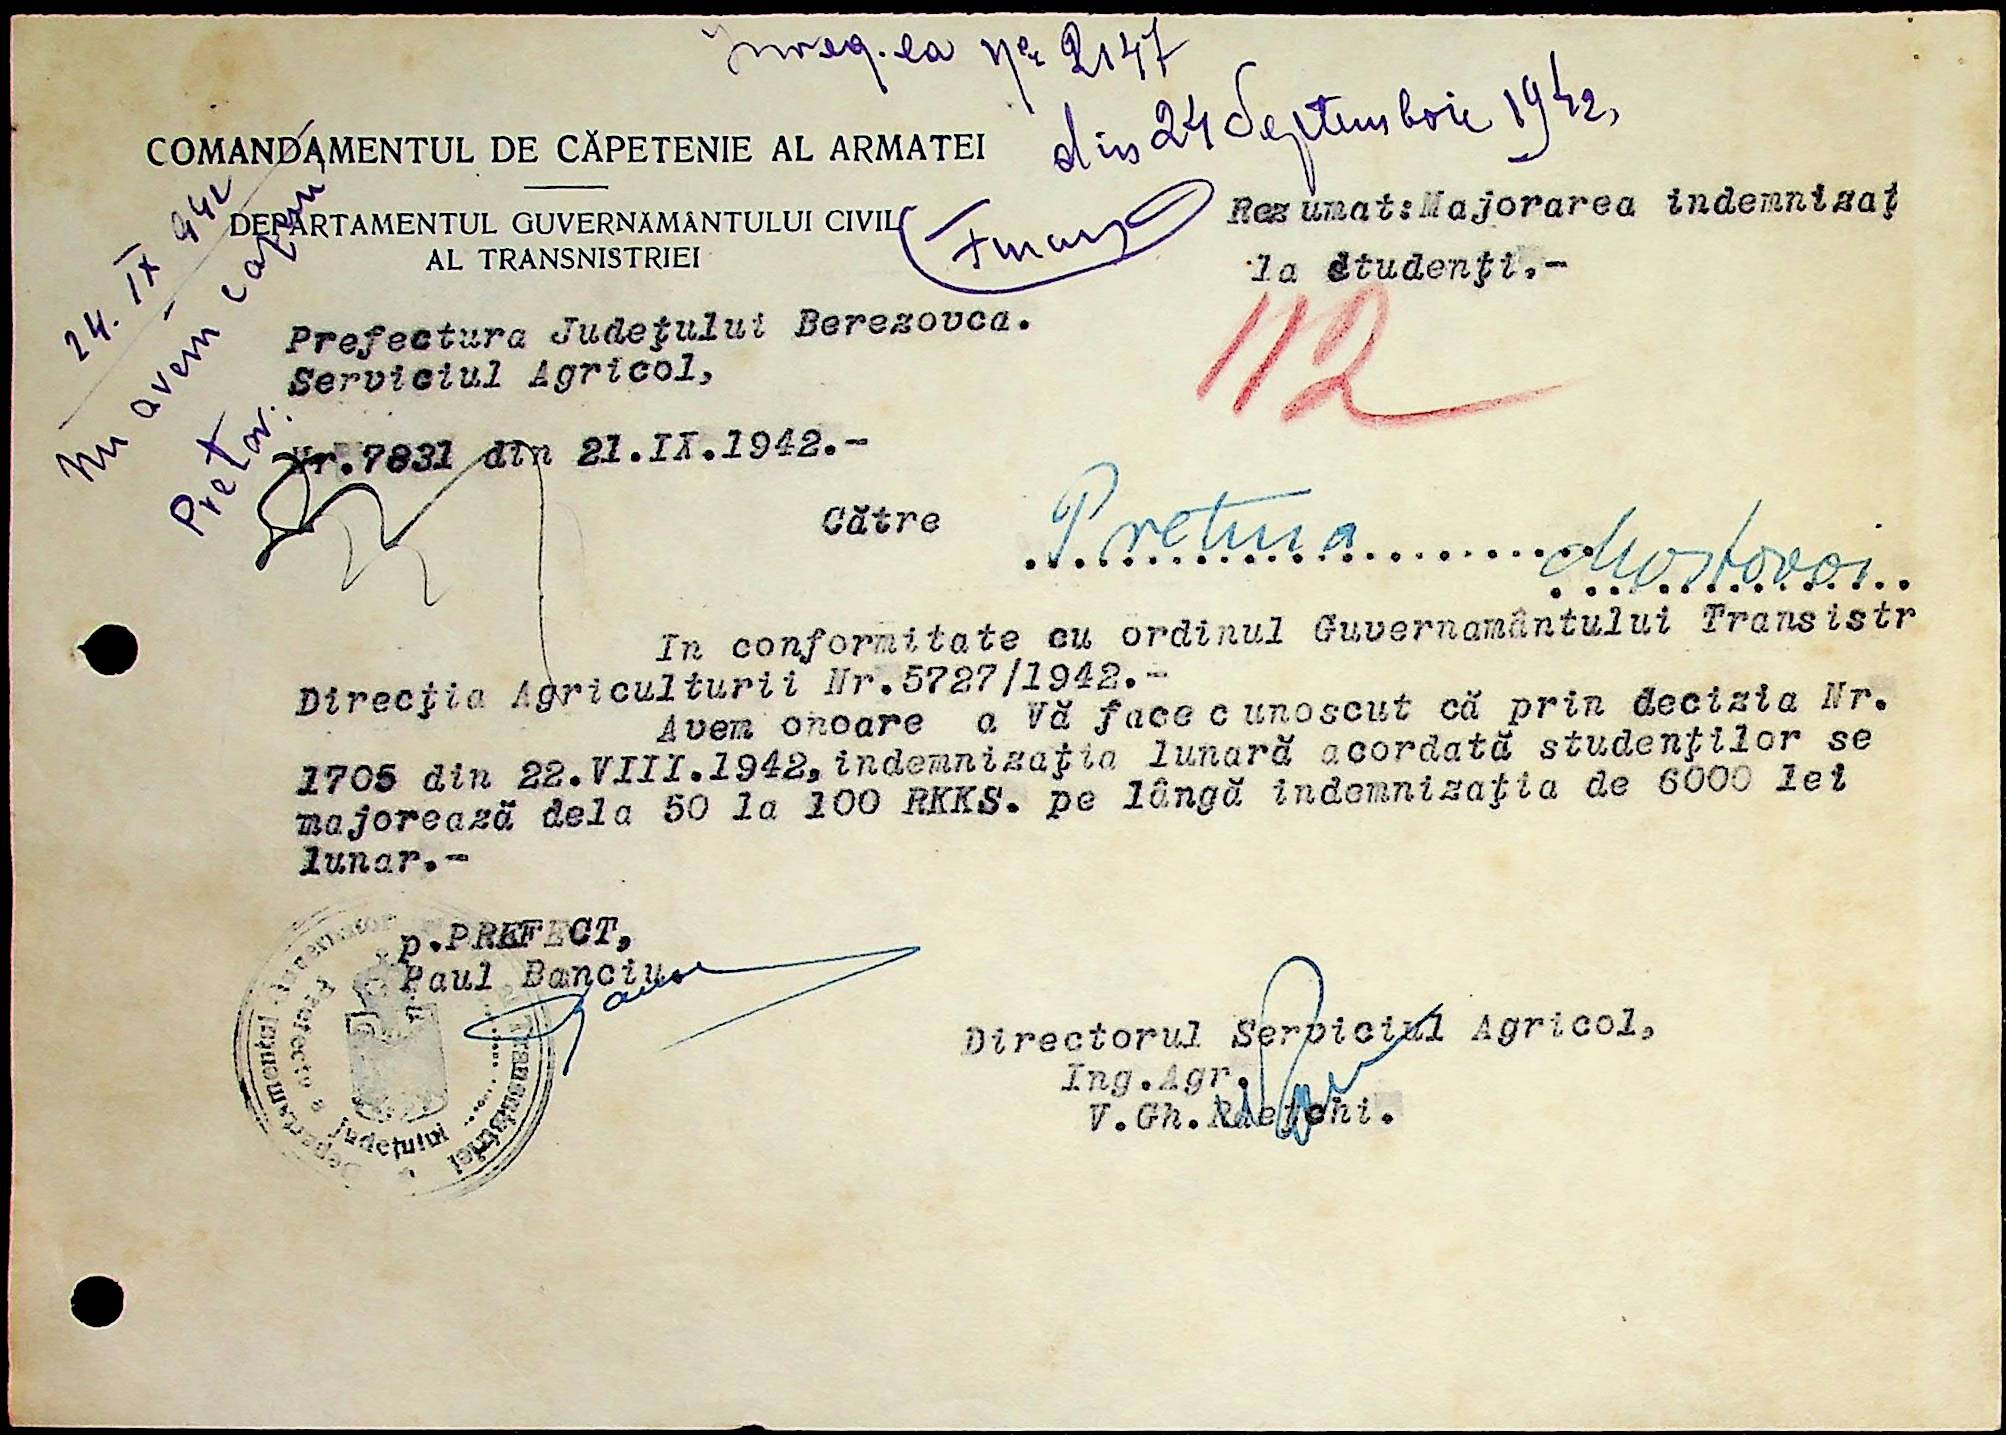 Inreg. la Nr 2147
din 24 Septembrie 1942,
COMANDAMENTUL DE CĂPETENIE AL ARMATEI
DEPARTAMENTUL GUVERNĂMÂNTULUI CIVIL
AL TRANSNISTRIEI
24. IX 942
Nu avem cazuri
Pretor.
Rezumat:Majorarea indemnizaţ
la studenţi.-
112
Prefectura Judeţului Berezovca.
Serviciul Agricol,
Nr.7831 din 21.IX.1942.-
Către Pretura Mostovoi
In conformitate cu ordinul Guvernamântului Transistr
Direcţia Agriculturii Nr.5727/1942.-
Avem onoare a Vă face cunoscut că prin decizia Nr.
1705 din 22.VIII.1942,indemnizaţia lunară acordată studenţilor se
majorează dela 50 la 100 RKKS. pe lângă indemnizaţia de 6000 lei
lunar.-
p.PREFECT,
Paul Banciu
Departamentul Guvernator Transnistriei
Prefectura
Judeţului
Directorul Serviciul Agricol,
Ing.Agr.
V.Gh.Raeţchi.